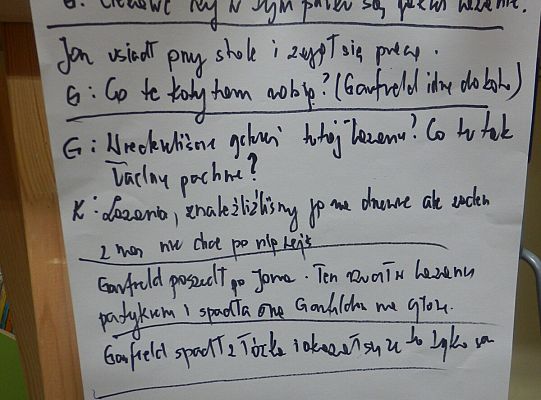 G: Ciekawe czy w tym parku są
Jon usiadł przy stole i zajął się pracą.
G: Co te koty tam robią? (Garfield idzie do kotów)
G: Co tu tak
ładnie pachnie?
K: Lazania, znaleźliśmy ją na drzewie ale żaden
z nas nie chce po nią wejść
Garfield poszedł po Jona. Ten
patykiem i spadła ona Garfieldowi na głowę.
Garfield spadł z łóżka i okazało się że to tylko sen